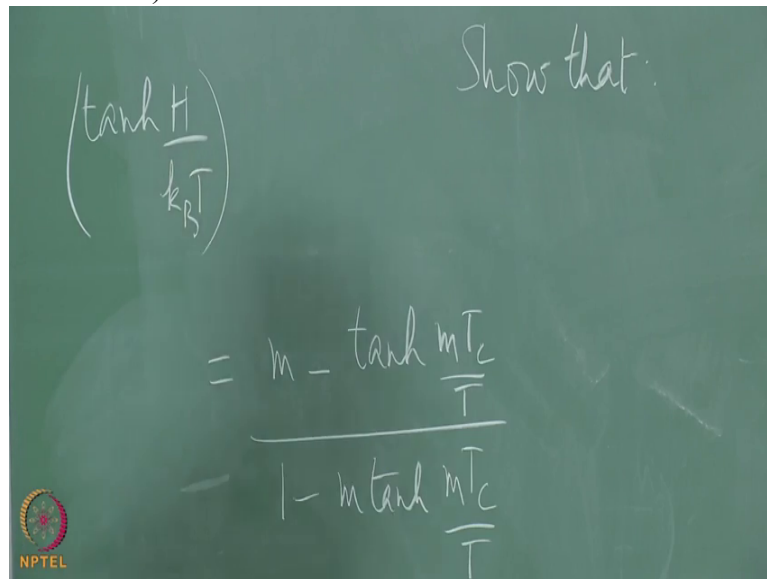 Show that:
(tanh H/k_BT)
= m - tanh mT_c/T
1 - m tanh mT_c/T
NPTEL